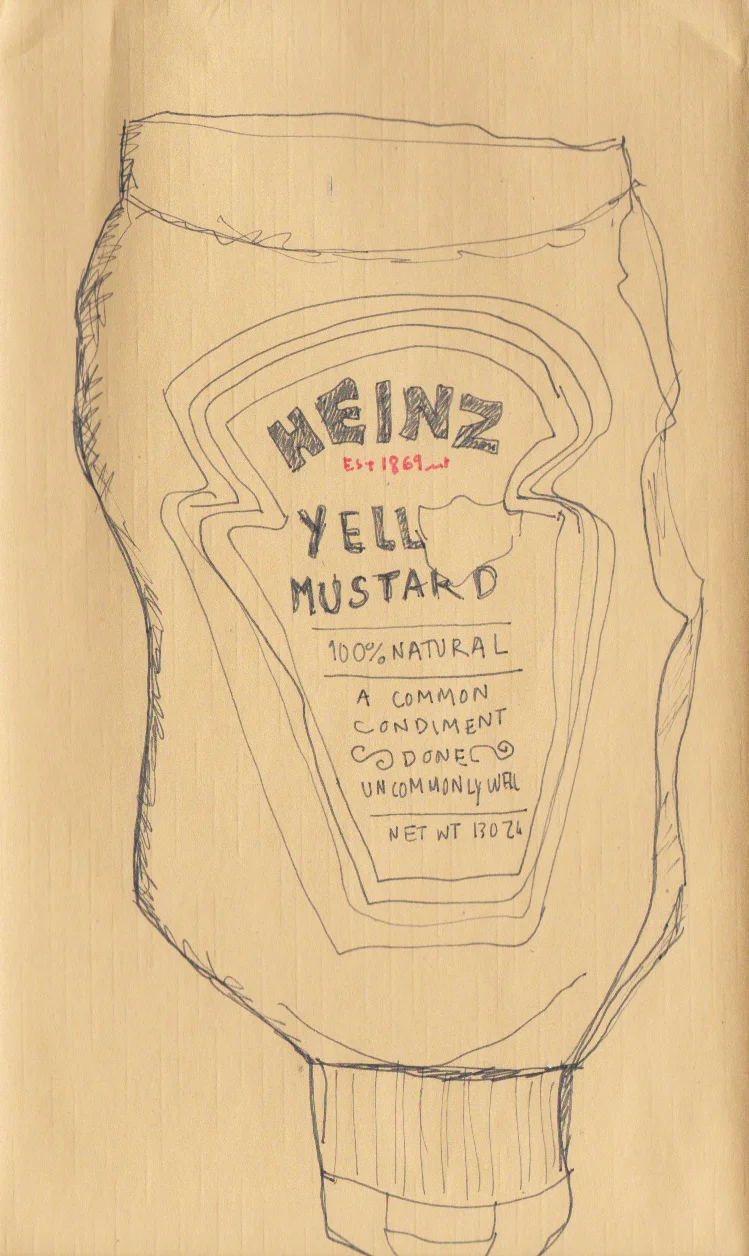 HEINZ
Est 1869
YELL
MUSTARD
100% NATURAL
A COMMON
CONDIMENT
DONE
UNCOMMONLY WELL
NET WT 130Z